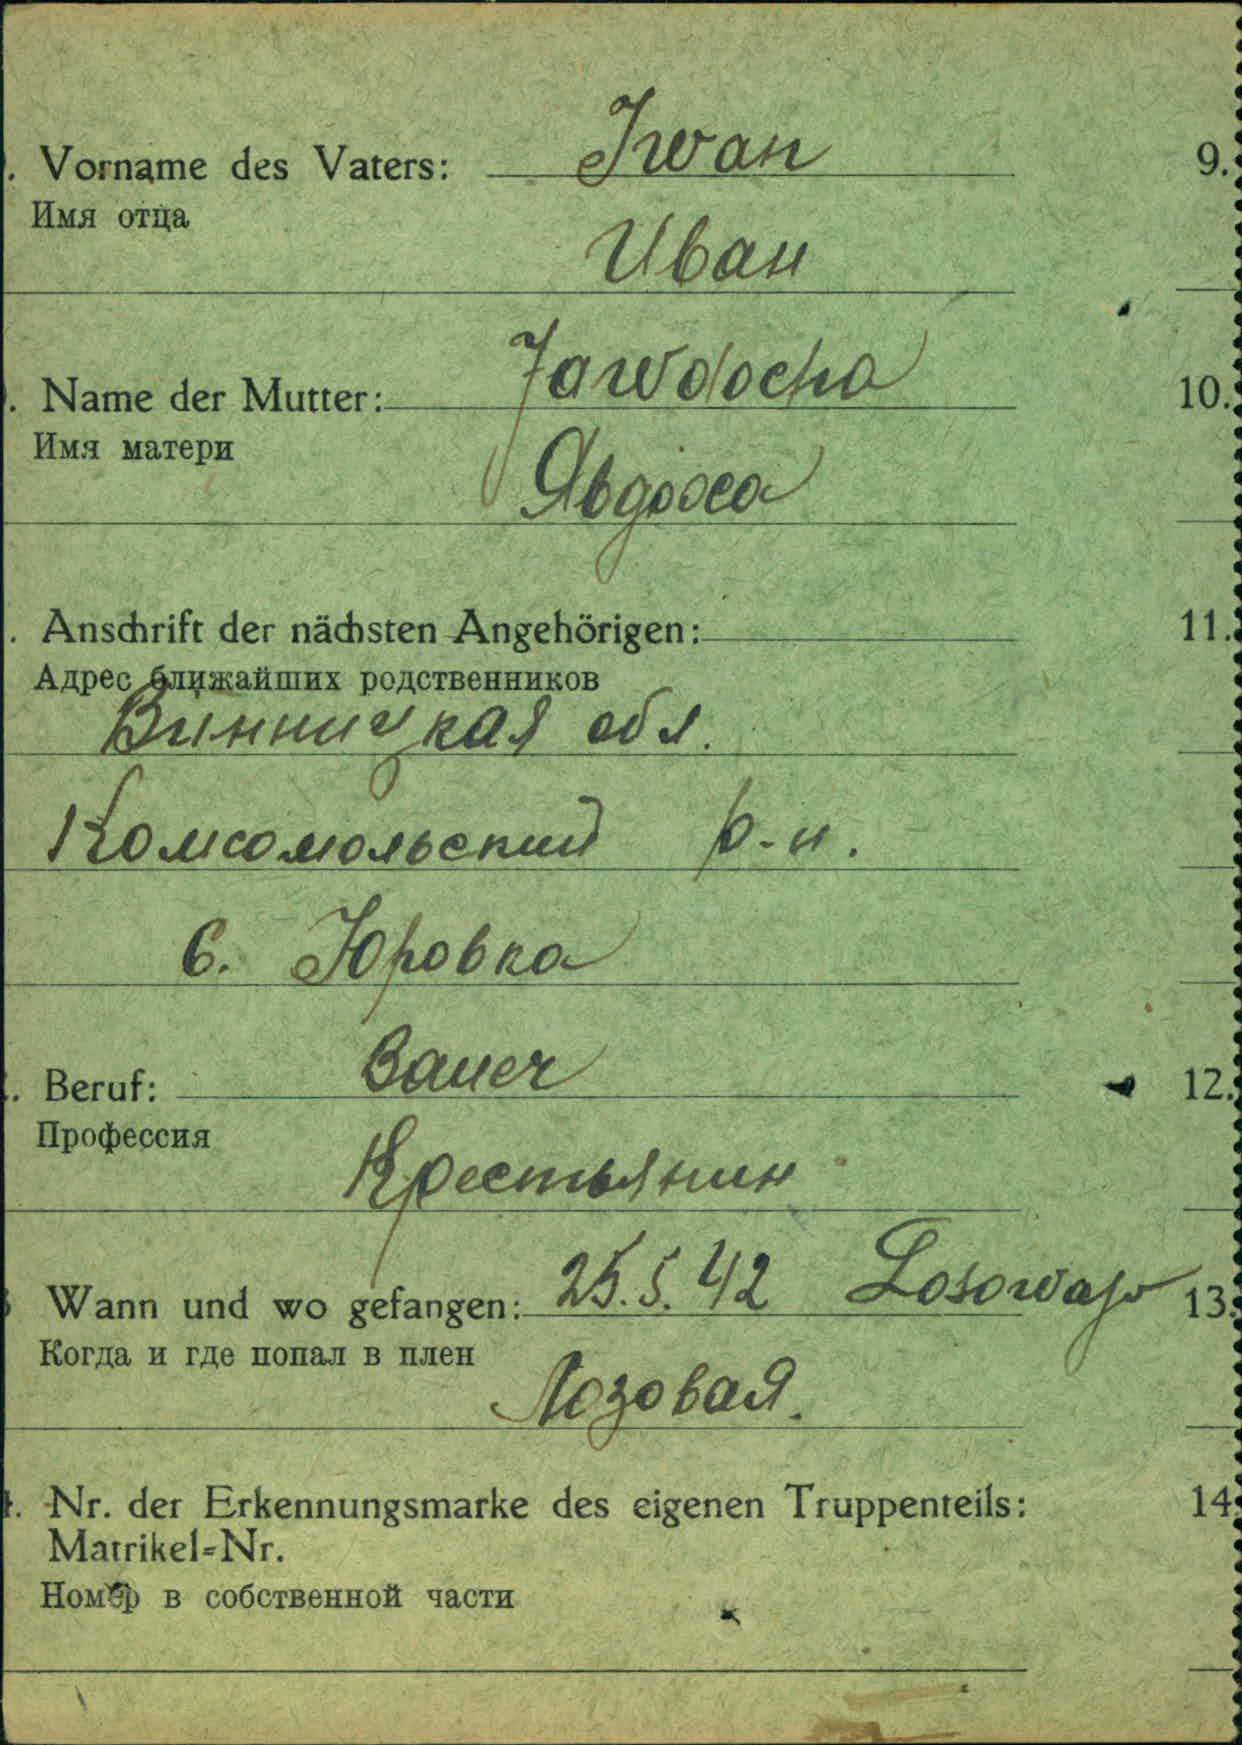 . Vorname des Vaters: Iwan 9.
Имя отца
Иван
. Name der Mutter: Jawdocha 10.
Имя матери
Явдоха
. Anschrift der nächsten Angehörigen: 11.
Адрес ближайших родственников
Винницкая обл.
Комсомольский р-н.
с. Юровка
. Beruf: Bauer 12.
Профессия
Крестьянин
Wann und wo gefangen: 25.5.42 Losowaja 13.
Когда и где попал в плен
Лозовая.
. Nr. der Erkennungsmarke des eigenen Truppenteils: 14.
Matrikel=Nr.
Номер в собственной части